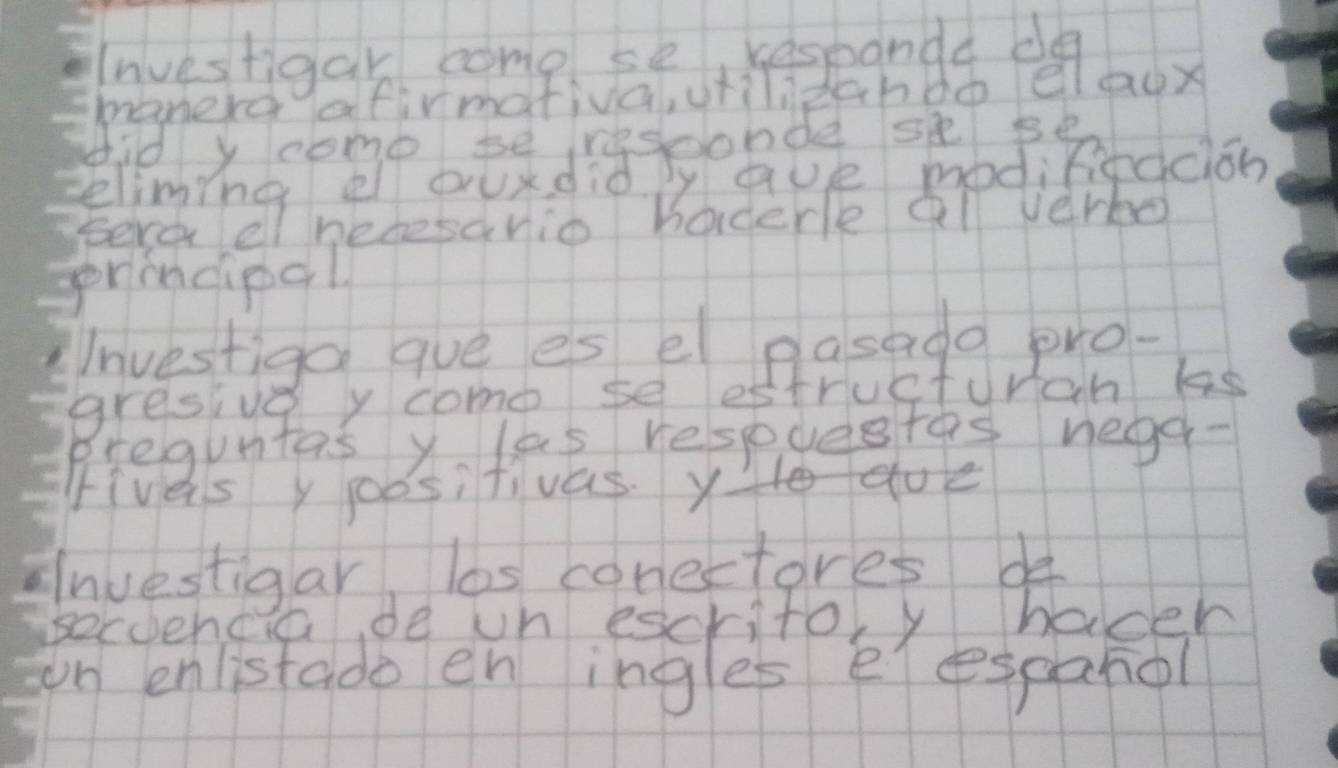 •Investigar como se responde de
manera afirmativa, utilizando el aux
did y como se responde si se
elimina el aux did y que modificación
sera el necesario hacerle al verbo
principal
•Investiga que es el pasado pro-
gresivo y como se estructuran las
preguntas y las respuestas nega-
tivas y positivas. y lo que
•Investigar los conectores de
secuencia de un escrito, y hacer
un enlistado en ingles e español